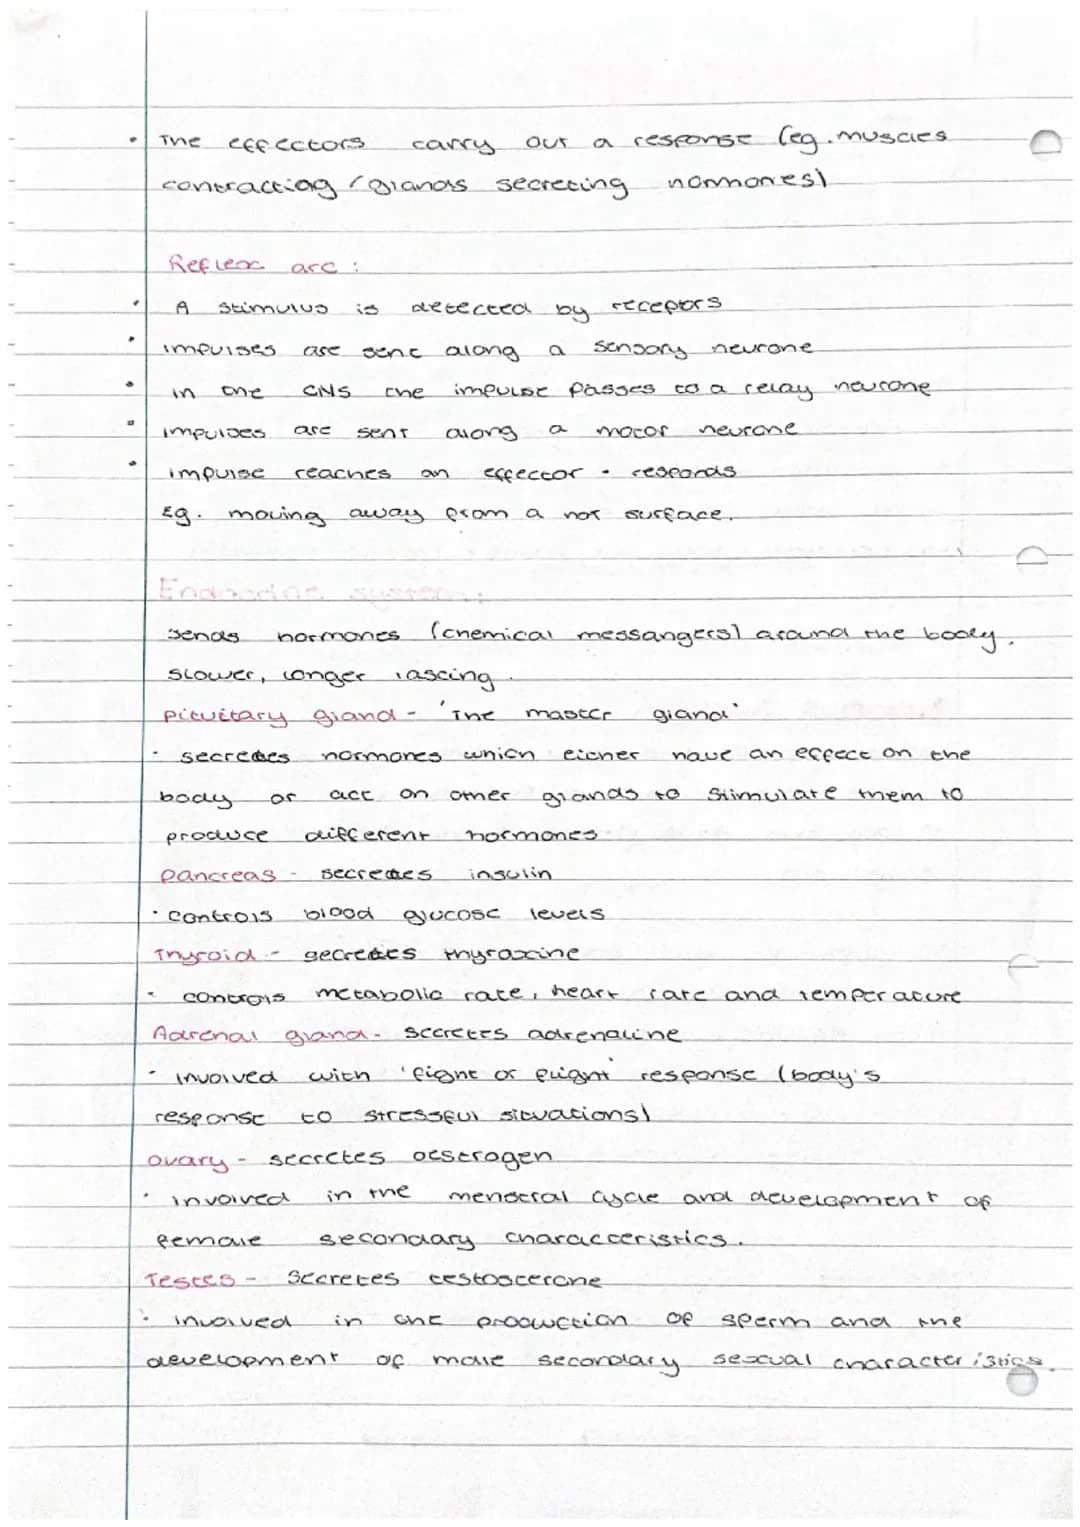 • The effectors carry out a response (eg. muscles
contracting / glands secreting hormones)
Reflex arc :
• A stimulus is detected by receptors
• impulses are sent along a sensory neurone
• in the CNS the impulse passes to a relay neurone
• impulses are sent along a motor neurone
• impulse reaches an effector - responds
Eg. moving away from a hot surface.
Endocrine system:
sends hormones (chemical messangers) around the body.
slower, longer lasting.
pituitary gland - 'The master gland'
• secretes hormones which either have an effect on the
body or act on other glands to stimulate them to
produce different hormones
pancreas - secretes insulin
• controls blood glucose levels
Thyroid - secretes thyroxine
• controls metabolic rate, heart rate and temperature
Adrenal gland - secretes adrenaline
• involved with 'fight or flight' response (body's
response to stressful situations)
ovary - secretes oestrogen
• involved in the menstral cycle and development of
female secondary characteristics.
Testes - secretes testosterone
• involved in the production of sperm and the
development of male secondary sexual characteristics.